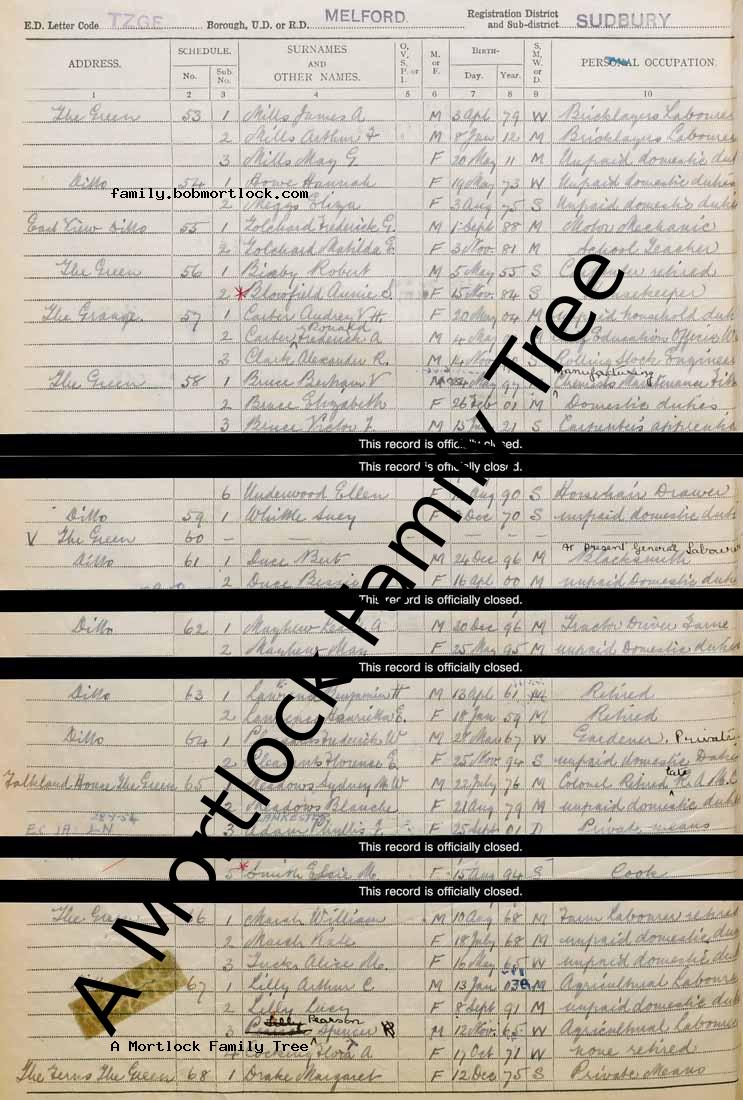 E.D. Letter Code TZGF Borough, U.D. or R.D. MELFORD. Registration District and Sub-district SUDBURY
ADDRESS. SCHEDULE. No. Sub. No. SURNAMES AND OTHER NAMES. O, V, S, P, or I. M. or F. BIRTH- Day. Year. S, M, W, or D. PERSONAL OCCUPATION.
1 2 3 4 5 6 7 8 9 10
The Green 53 1 Mills James A M 3 Apl 79 W Bricklayers Labourer
2 Mills Arthur F M 8 Jan 12 M Bricklayers Labourer
3 Mills May G F 20 May 11 M Unpaid domestic dut
Ditto 54 1 Bowe Hannah F 19 May 73 W Unpaid domestic duties
family.bobmortlock.com
2 Meggs Eliza F 3 Aug 75 S Unpaid domestic duties
East View Ditto 55 1 Golchard Frederick G. M 1 Sept 88 M Motor Mechanic
2 Golchard Matilda E. F 3 Nov. 81 M School Teacher
The Green 56 1 Bixby Robert M 5 May 55 S retired
2 Bloomfield Annie S F 15 Nov. 84 S
The Grange. 57 1 Carter Audrey V. H. F 20 May 04 M household dut
2 Carter Frederick Ronald A M 4 May Education Officer
3 Clark Alexander R. M 14 Nov Rolling Stock Engineer
The Green 58 1 Bruce Bertram V M May 97 manufacturing Chemists Maintenance Fitt
2 Bruce Elizabeth F 26 Feb 01 M Domestic duties
3 Bruce Victor J. M 15 Jan 21 S Carpenters apprentic
This record is officially closed.
This record is officially closed.
6 Underwood Ellen F Aug 90 S Horsehair Drawer
Ditto 59 1 Whittle Lucy F Dec 70 S unpaid domestic duti
V The Green 60 - - - - - -
Ditto 61 1 Duce Bert M 24 Dec 96 M At present General Labourer Blacksmith
2 Duce Bessie F 16 Apl 00 M unpaid Domestic dut
This record is officially closed.
Ditto 62 1 Mayhew A M 20 Dec 96 M Tractor Driver Farm
2 Mayhew May F 25 May 95 M unpaid Domestic duties
This record is officially closed.
Ditto 63 1 Benjamin H M 13 Apl 61 M Retired
2 Henrietta E. F 18 Jan 59 M Retired
Ditto 64 1 Frederick W M 28 Mar 67 W Gardener. Private
2 Pleasants Florence E. F 25 Nov. 94 S unpaid domestic Duties
Falkland House The Green 65 1 Meadows Sydney M. W M 22 July 76 M Colonel Retired late R.A.M.C
2 Meadows Blanche F 21 Aug 79 M unpaid domestic dut
3 Adam Phyllis F 25 Sept 01 D Private means
This record is officially closed.
5 Smith Elsie M. F 15 Aug 94 S Cook
This record is officially closed.
The Green 66 1 Marsh William M 10 Aug 68 M Farm Labourer retired
2 Marsh Kate F 18 July 68 M unpaid domestic dut
3 Tucker Alice M. F 16 May 65 W unpaid domestic dut
67 1 Lilly Arthur C. M 13 Jan M Agricultural Labour
2 Lilly Lucy F 8 Sept 91 M unpaid domestic dut
3 Pearson Spencer M 12 Nov. 65 W Agricultural Labourer
A Mortlock Family Tree
4 Flora A F 17 Oct 71 W none retired
The Ferns The Green 68 1 Drake Margaret F 12 Dec 75 S Private Means
A Mortlock Family Tree